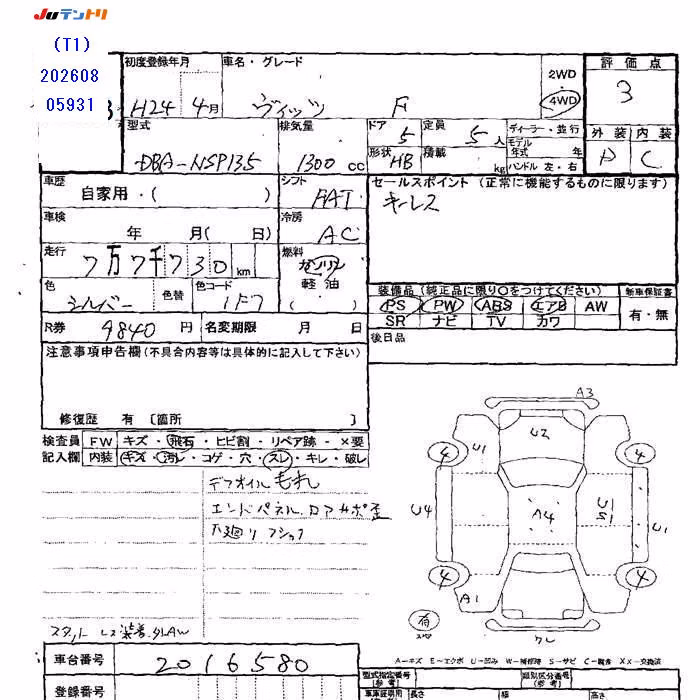 Juテントリ
(T1)
202608
05931
初度登録年月 車名・グレード 2WD 評価点
H24 4月 ヴィッツ F 4WD 3
型式 排気量 ドア 5 定員 5人 ディーラー・並行 外装 内装
DBA-NSP135 1300cc 形状 HB 積載 kg モデル年式 年 ハンドル 左・右 A C
車歴 自家用・( ) シフト FAT セールスポイント(正常に機能するものに限ります)
車検 年 月( 日) 冷房 AC キーレス
走行 7万7千730km 燃料 ガソリン 軽油 ( )
色 シルバー 色替 色コード 1F7
装備品(純正品に限り○をつけてください) 新車保証書
PS PW ABS エアB AW 有・無
SR ナビ TV カワ
R券 9840円 名変期限 月 日 後日品
注意事項申告欄(不具合内容等は具体的に記入して下さい)
修復歴 有〔箇所 〕
検査員 FW キズ・飛石・ヒビ割・リペア跡・×要
記入欄 内装 キズ・汚レ・コゲ・穴・スレ・キレ・破レ
デフオイルもれ
エンドパネル、ロアサポ歪
下廻りフショク
A3
U1 U2
4 4
U4 A4 U1
4 4
A1
有
車台番号 2016580
A-キズ E-エクボ U-凹み W-補修跡 S-サビ C-腐食 XX-交換済
登録番号
型式指定番号(参考) 類別区分番号(参考)
長さ 幅 高さ